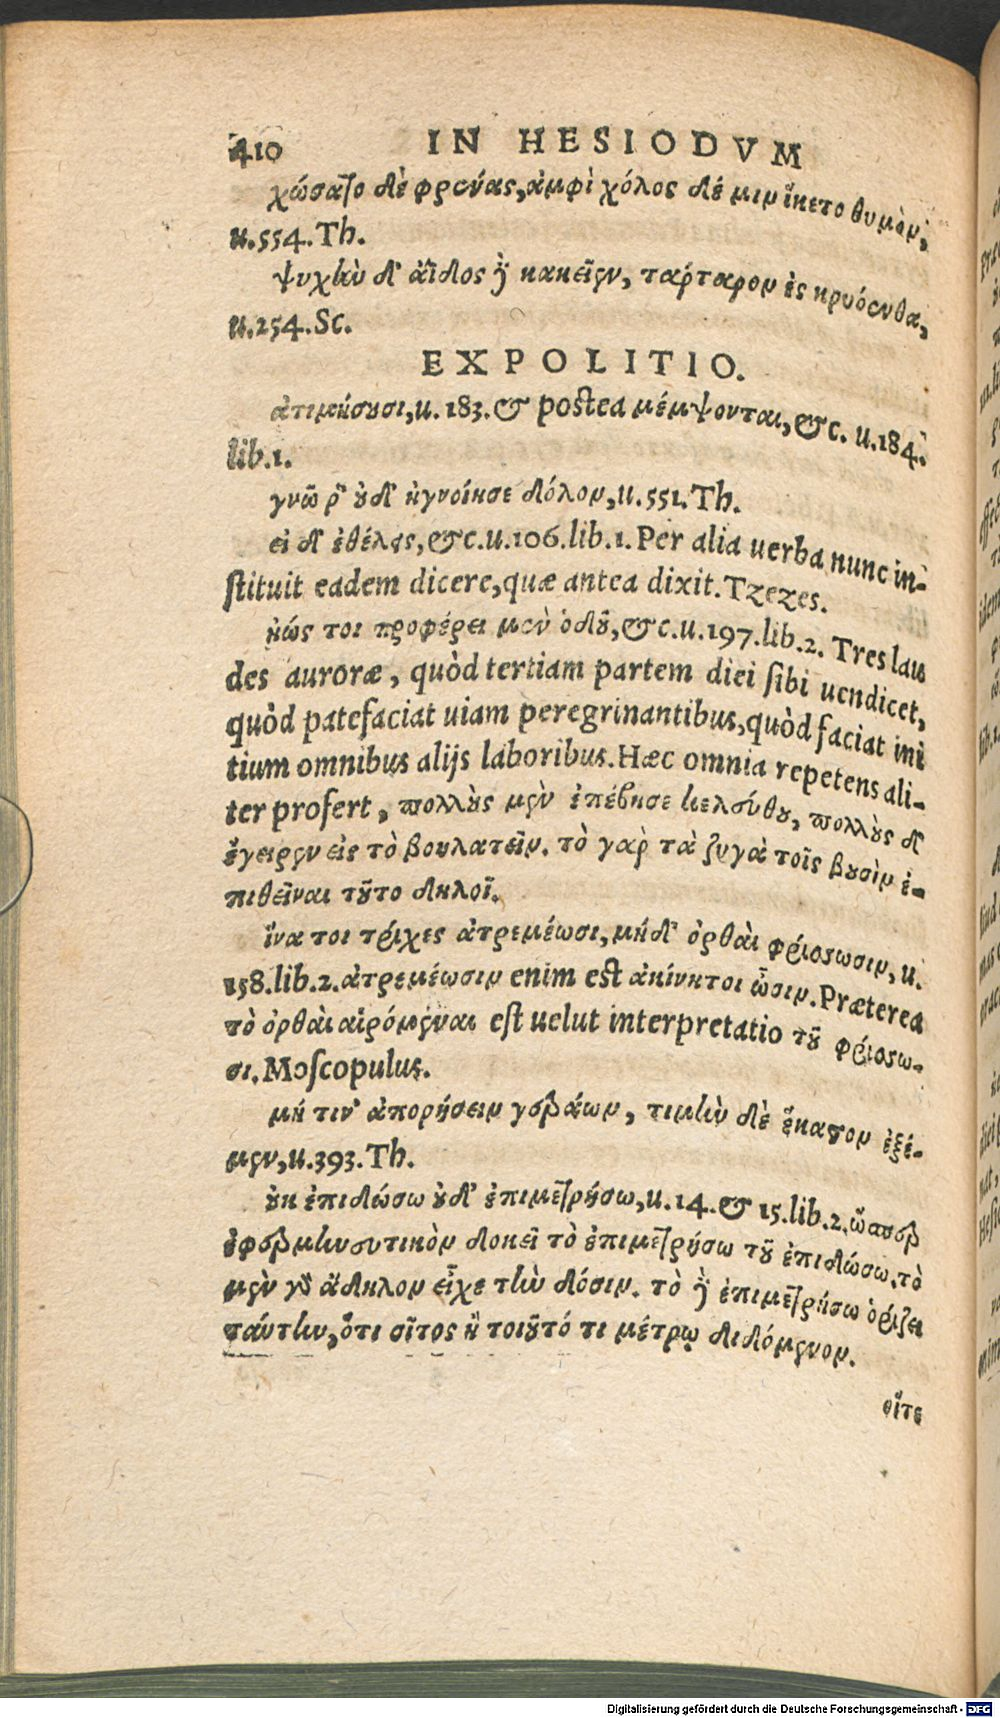 410 IN HESIODVM
χώσατο δὲ φρένας, ἀμφὶ χόλος δέ μιν ἵκετο θυμὸν,
u.554. Th.
ψυχὴν δ' ἄϊδος καὶ κατεῖχεν, τάρταρον ἐς κρυόενθα,
u.254. Sc.
EXPOLITIO.
ἀτιμήσουσι, u. 183. & postea μέμψονται, &c. u.184.
lib.1.
γνῶ ῥ' οὐδ' ἠγνοίησε δόλον, u.551. Th.
εἰ δ' ἐθέλεις, &c. u.106. lib.1. Per alia uerba nunc in-
stituit eadem dicere, quæ antea dixit. Tzezes.
ἠώς τοι προφέρει μὲν ὁδοῦ, &c. u.197. lib.2. Tres lau
des auroræ, quòd tertiam partem diei sibi uendicet,
quòd patefaciat uiam peregrinantibus, quòd faciat ini
tium omnibus alijs laboribus. Hæc omnia repetens ali-
ter profert, πολλοὺς μὲν ἐπέβησε κελεύθου, πολλοὺς δ'
ἔγειρεν εἰς τὸ βουλατεῖν. τὸ γὰρ τὰ ζυγὰ τοῖς βουσὶν ἐ-
πιθεῖναι τοῦτο δηλοῖ.
ἵνα τοι τρίχες ἀτρεμέωσι, μὴ δ' ὀρθαὶ φρίσσωσιν, u.
158. lib.2. ἀτρεμέωσιν enim est ἀκίνητοι ὦσιν. Præterea
τὸ ὀρθαὶ αἰρόμεναι est uelut interpretatio τοῦ φρίσσω-
σι. Moscopulus.
μή τιν' ἀπορήσειν γεράων, τιμὴν δὲ ἕκαστον ἑξέ-
μεν, u.393. Th.
οὐκ ἐπιδώσω οὐδ' ἐπιμετρήσω, u. 14. & 15. lib.2. ὥσπερ
ἐφερμηνευτικὸν δοκεῖ τὸ ἐπιμετρήσω τοῦ ἐπιδώσω. τὸ
μὲν γὰρ ἄδηλον εἶχε τὴν δόσιν. τὸ δὲ ἐπιμετρήσω ὁρίζει
ταύτην, ὅτι σῖτος ἢ τοιοῦτό τι μέτρῳ διδόμενον.
εἴτε
Digitalisierung gefördert durch die Deutsche Forschungsgemeinschaft - DFG